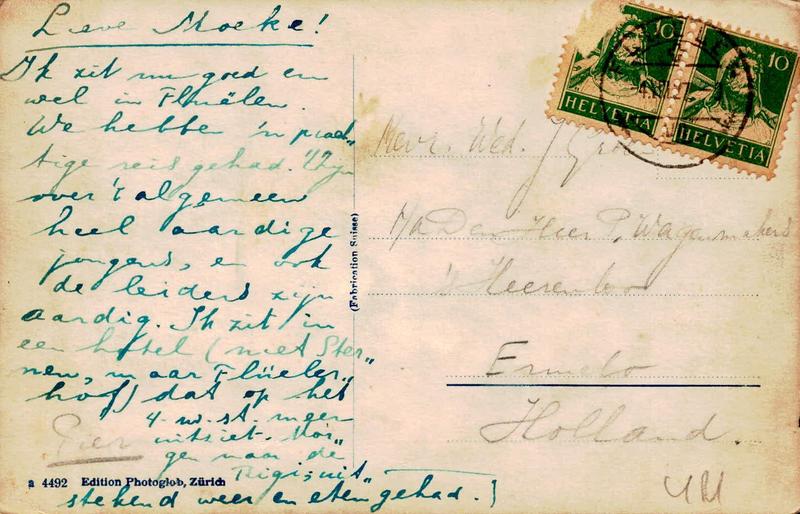 Lieve Moeke!
Ik zit nu goed en
wel in Flüelen.
We hebben 'n prach"
tige reis gehad. 't Zijn
over 't algemeen
heel aardige
jongens, en ook
de leiders zijn
aardig. Ik zit in
een hotel (niet Ster"
nen, maar Flüeler"
hof) dat op het
4-w.st. meer
uitziet. Mor"
gen naar de
Rigi; uit"
stekend weer en eten gehad.)
Pier
a 4492 Edition Photoglob, Zürich
(Fabrication Suisse)
10
HELVETIA
10
HELVETIA
Mevr. Wed. J
p/a Den Heer P. Wagenmakers
's Heerenloo
Ermelo
Holland.